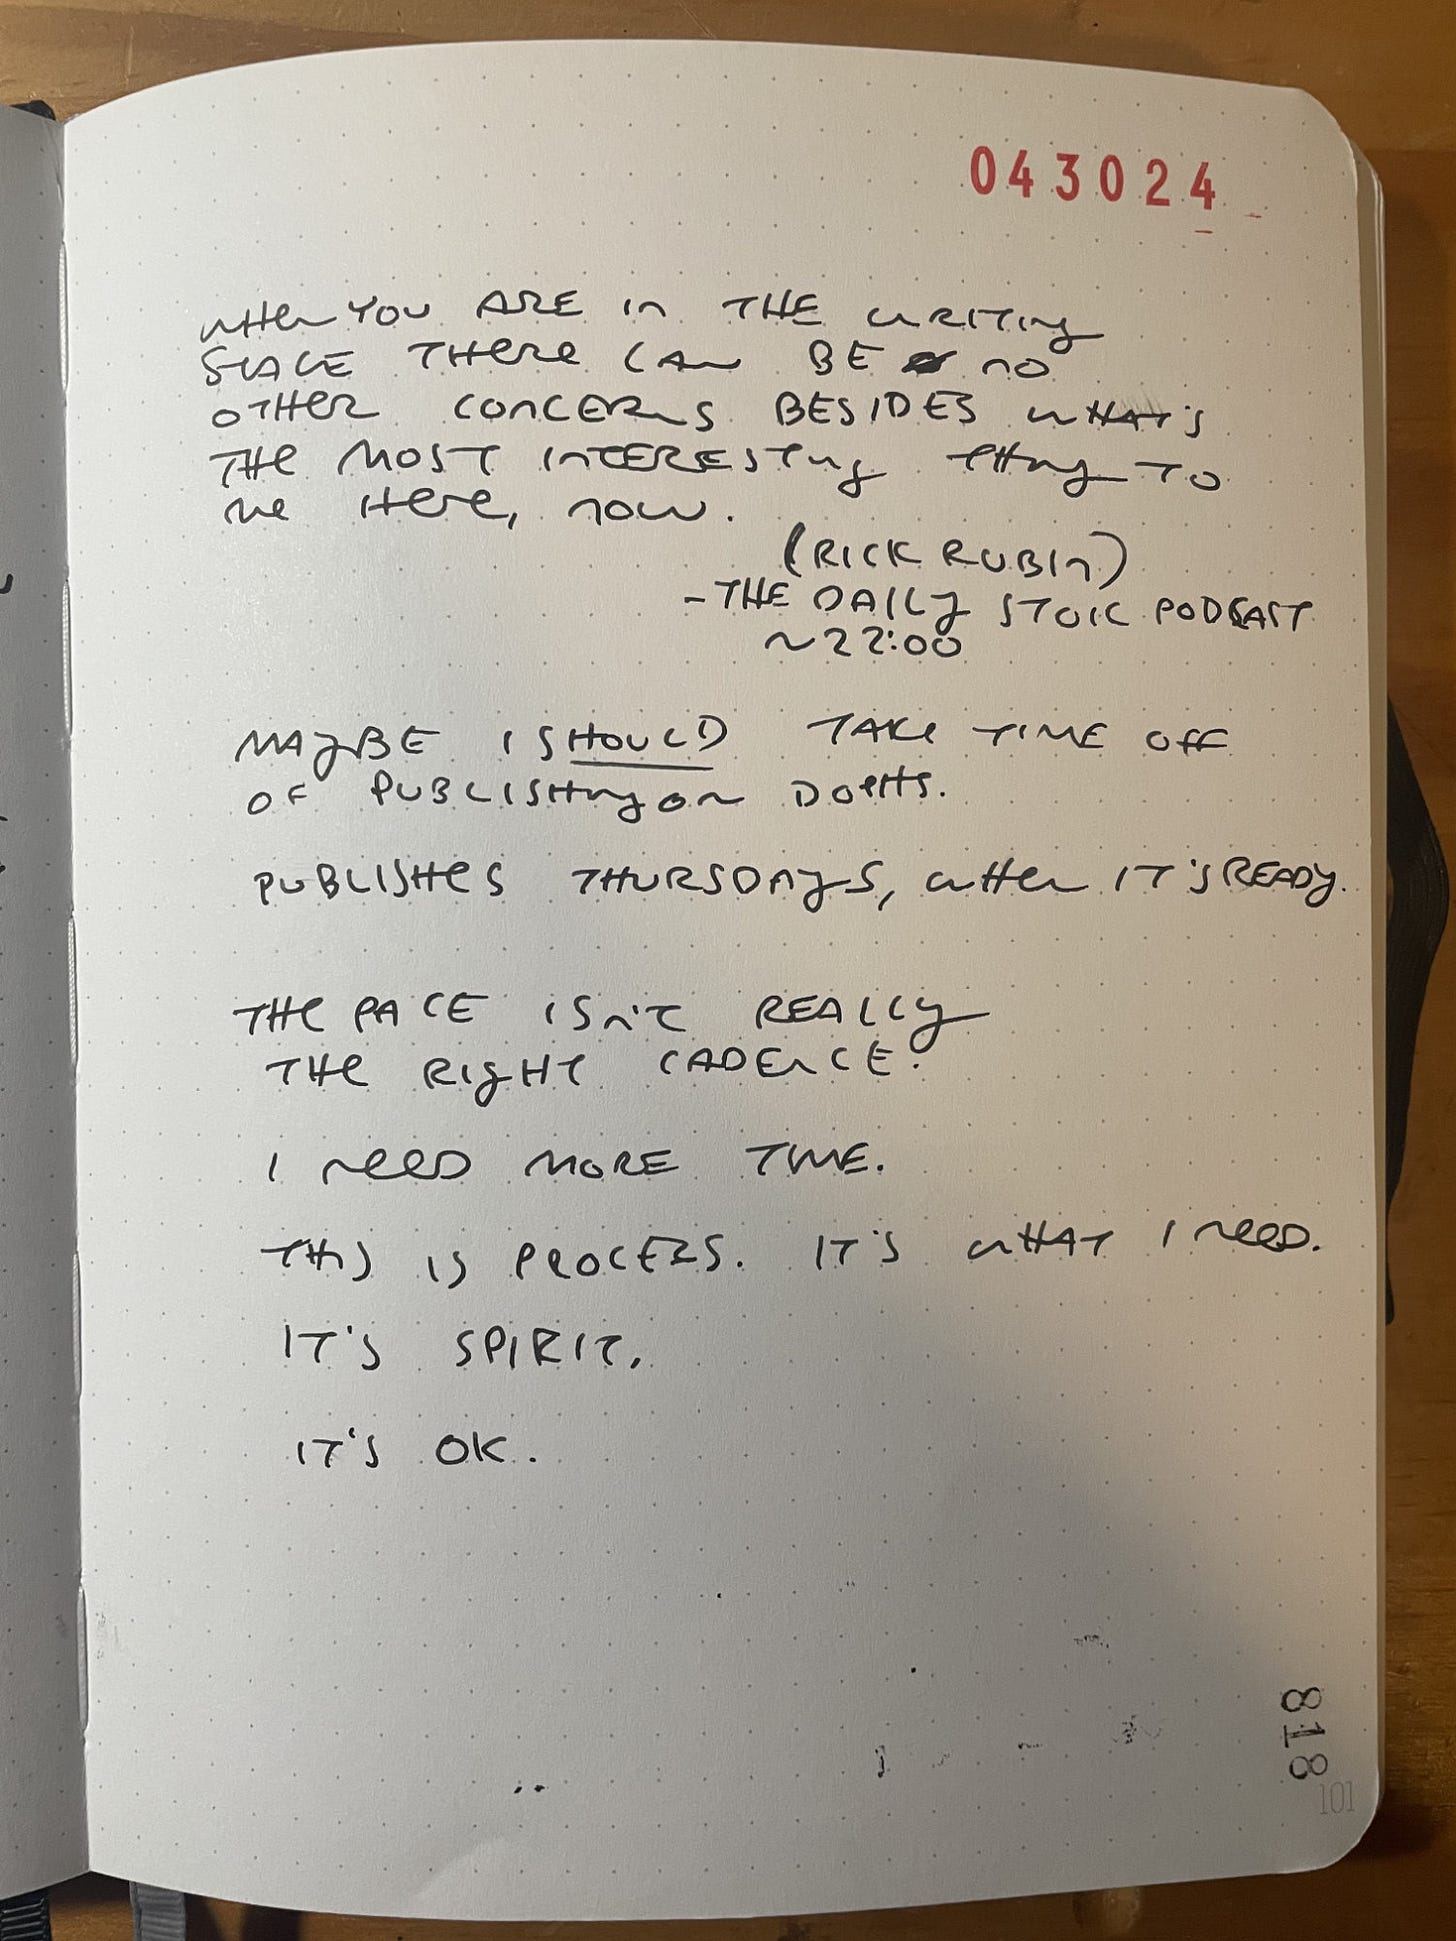 043024
WHEN YOU ARE IN THE WRITING
STAGE THERE CAN BE NO
OTHER CONCERNS BESIDES WHAT'S
THE MOST INTERESTING THING TO
ME HERE, NOW.
(RICK RUBIN)
- THE DAILY STOIC PODCAST
~22:00
MAYBE I SHOULD TAKE TIME OFF
OF PUBLISHING ON
PUBLISHES THURSDAYS, WHEN IT'S READY.
THE PACE ISN'T REALLY
THE RIGHT CADENCE.
I NEED MORE TIME.
THIS IS PROCESS. IT'S WHAT I NEED.
IT'S SPIRIT.
IT'S OK.
818
101